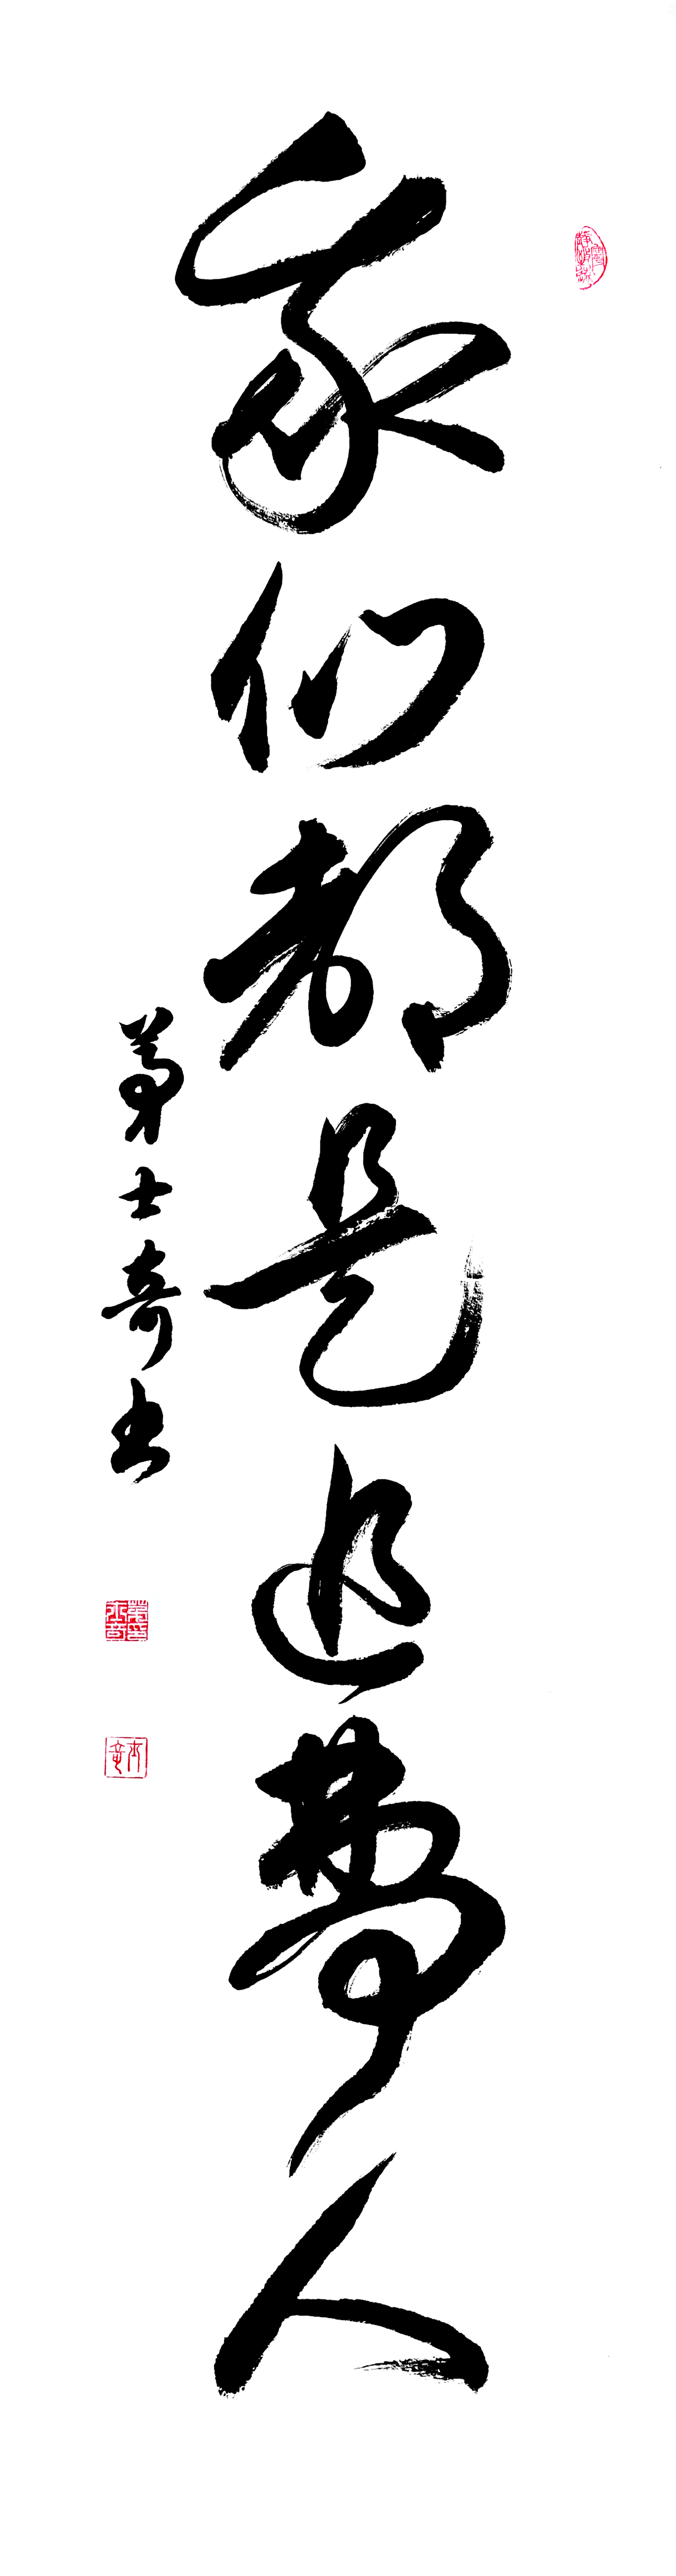 我们都是追梦人
士奇书